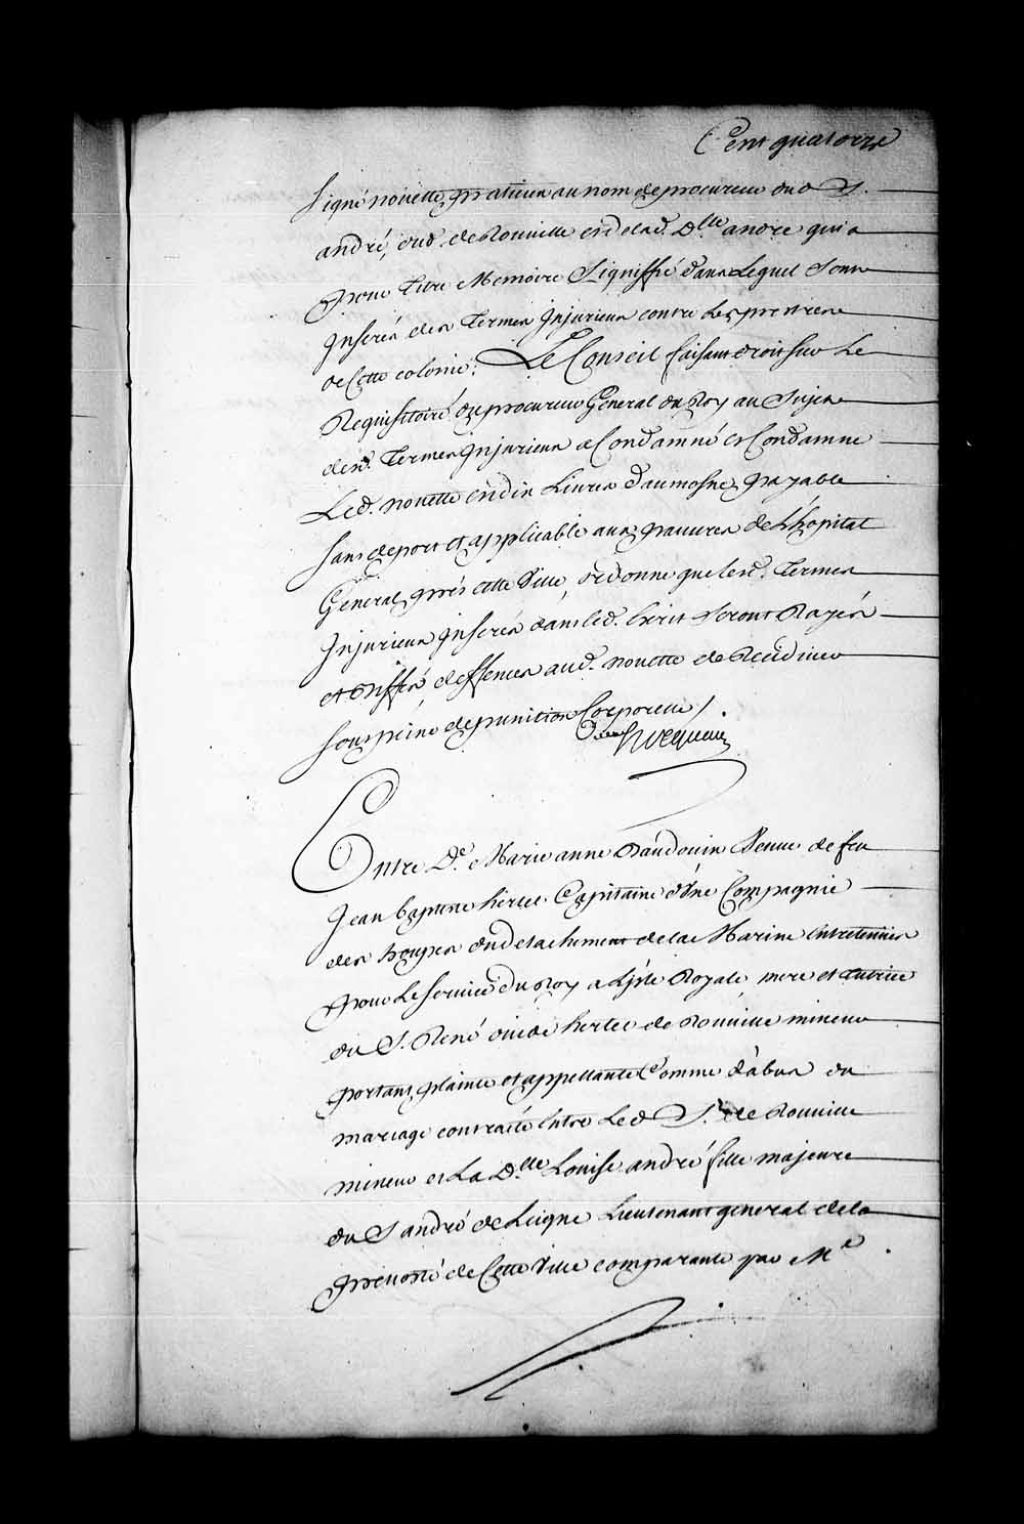 Cent quatorze
signé nouette, praticien au nom de procureur dud S.
andré, dud. de Rouville et de lad. D.lle andré qui a
pour titre Memoire Signiffié dans Lequel Sont
Inserés des Termes Injurieux contre Les prestres
de Cette colonie. Le Conseil faisant droit sur Le
Requisitoire du procureur General du Roy au Sujet
desd. Termes Injurieux a Condamné et Condamne
Led. nouette en dix Livres d'aumosne, payable
sans deport et applicable aux pauvres de L'hopital
General, prés cette Ville, ordonne que lesd. Termes
Injurieux Inserés dans led. Ecrit Seront Rayés
et Biffés, deffences aud. nouette de Recidiver
sous peine de punition Corporelle /.
hocquart
Entre D.e Marie anne Baudouin Veuve de feu
Jean baptiste hertel Capitaine d'une Compagnie
des troupes du detachement de la Marine Entretenües
pour Le service du Roy a L'Isle Royale, mere et tutrice
du S. René ovide hertel de Rouville mineur
portant plainte et appellante Comme d'abus du
mariage contracté Entre Led S.r de Rouville
mineur et La D.lle Louise andré fille majeure
du S andré de Leigne Lieutenant general de la
prevosté de Cette Ville comparante par M.e